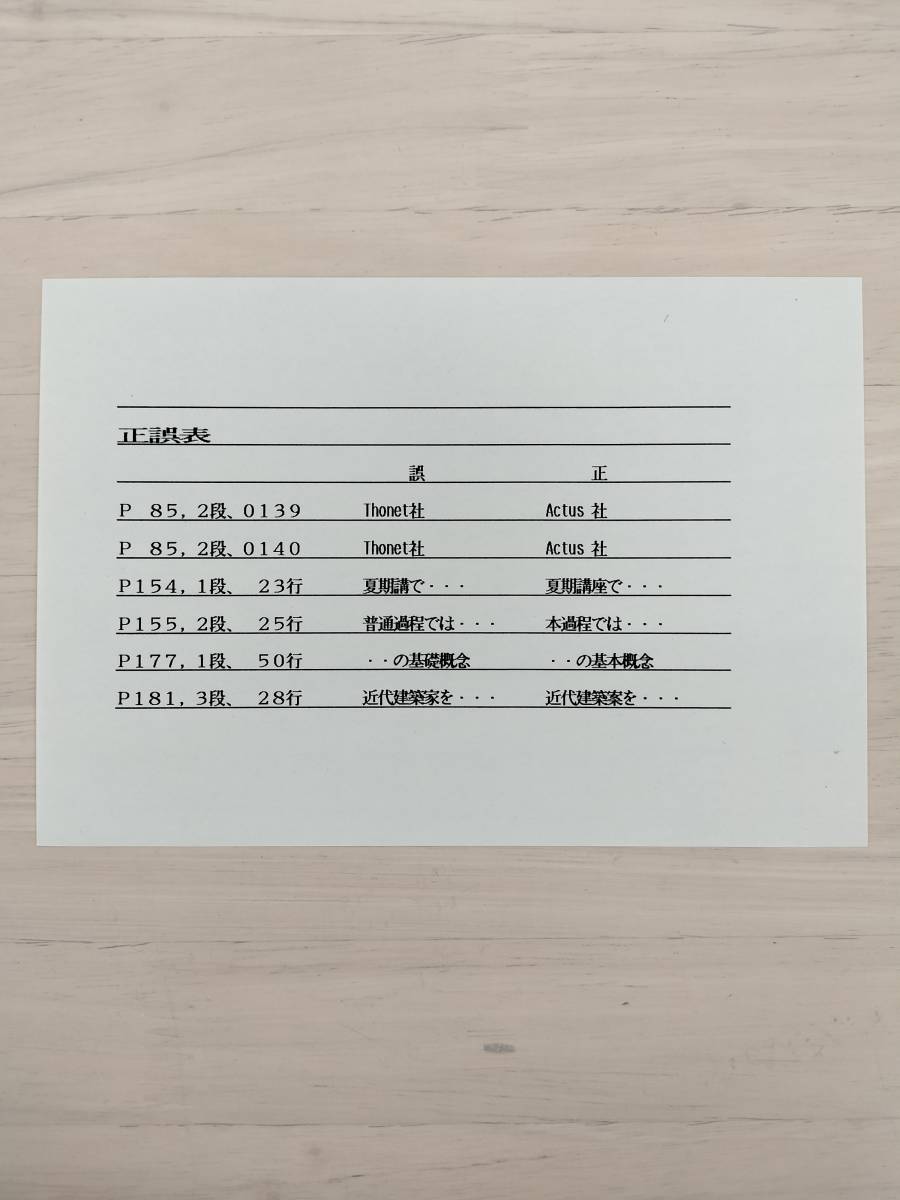 正誤表
誤 正
Ｐ　８５，２段、０１３９ Thonet社 Actus 社
Ｐ　８５，２段、０１４０ Thonet社 Actus 社
Ｐ１５４，１段、　２３行 夏期講で・・・ 夏期講座で・・・
Ｐ１５５，２段、　２５行 普通過程では・・・ 本過程では・・・
Ｐ１７７，１段、　５０行 ・・の基礎概念 ・・の基本概念
Ｐ１８１，３段、　２８行 近代建築家を・・・ 近代建築案を・・・